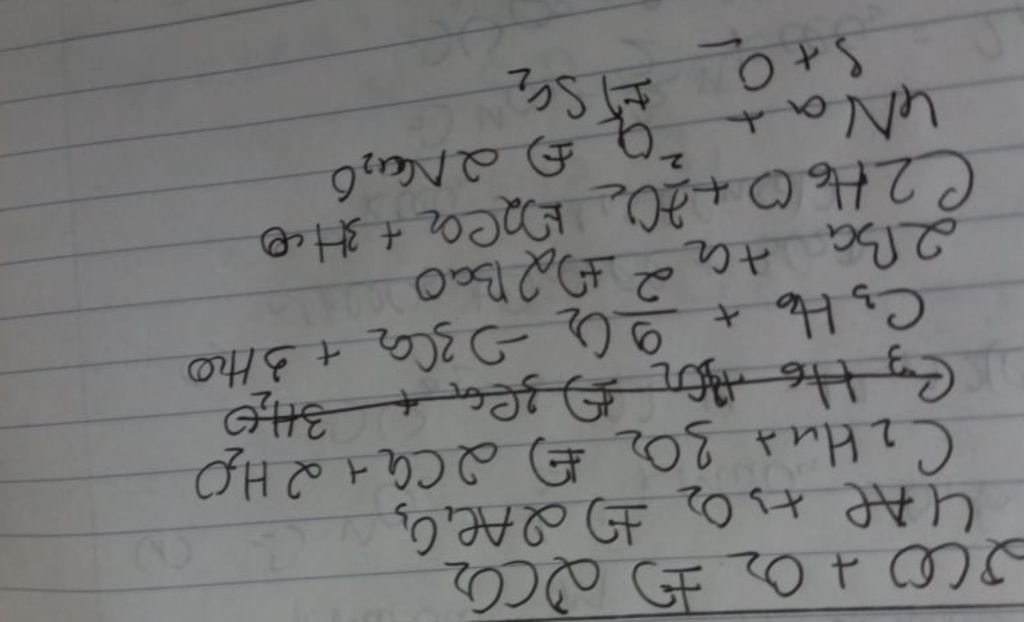 2CO + O₂ → 2CO₂
4Al + 3O₂ → 2Al₂O₃
C₂H₄ + 3O₂ → 2CO₂ + 2H₂O
C₃H₆ + O₂ → 3CO₂ + 3H₂O
C₃H₆ + 9/2 O₂ → 3CO₂ + 3H₂O
2Ba + O₂ → 2BaO
C2H₆O + 3O₂ → 2CO₂ + 3H₂O
4Na + O₂ → 2Na₂O
S + O₂ → SO₂